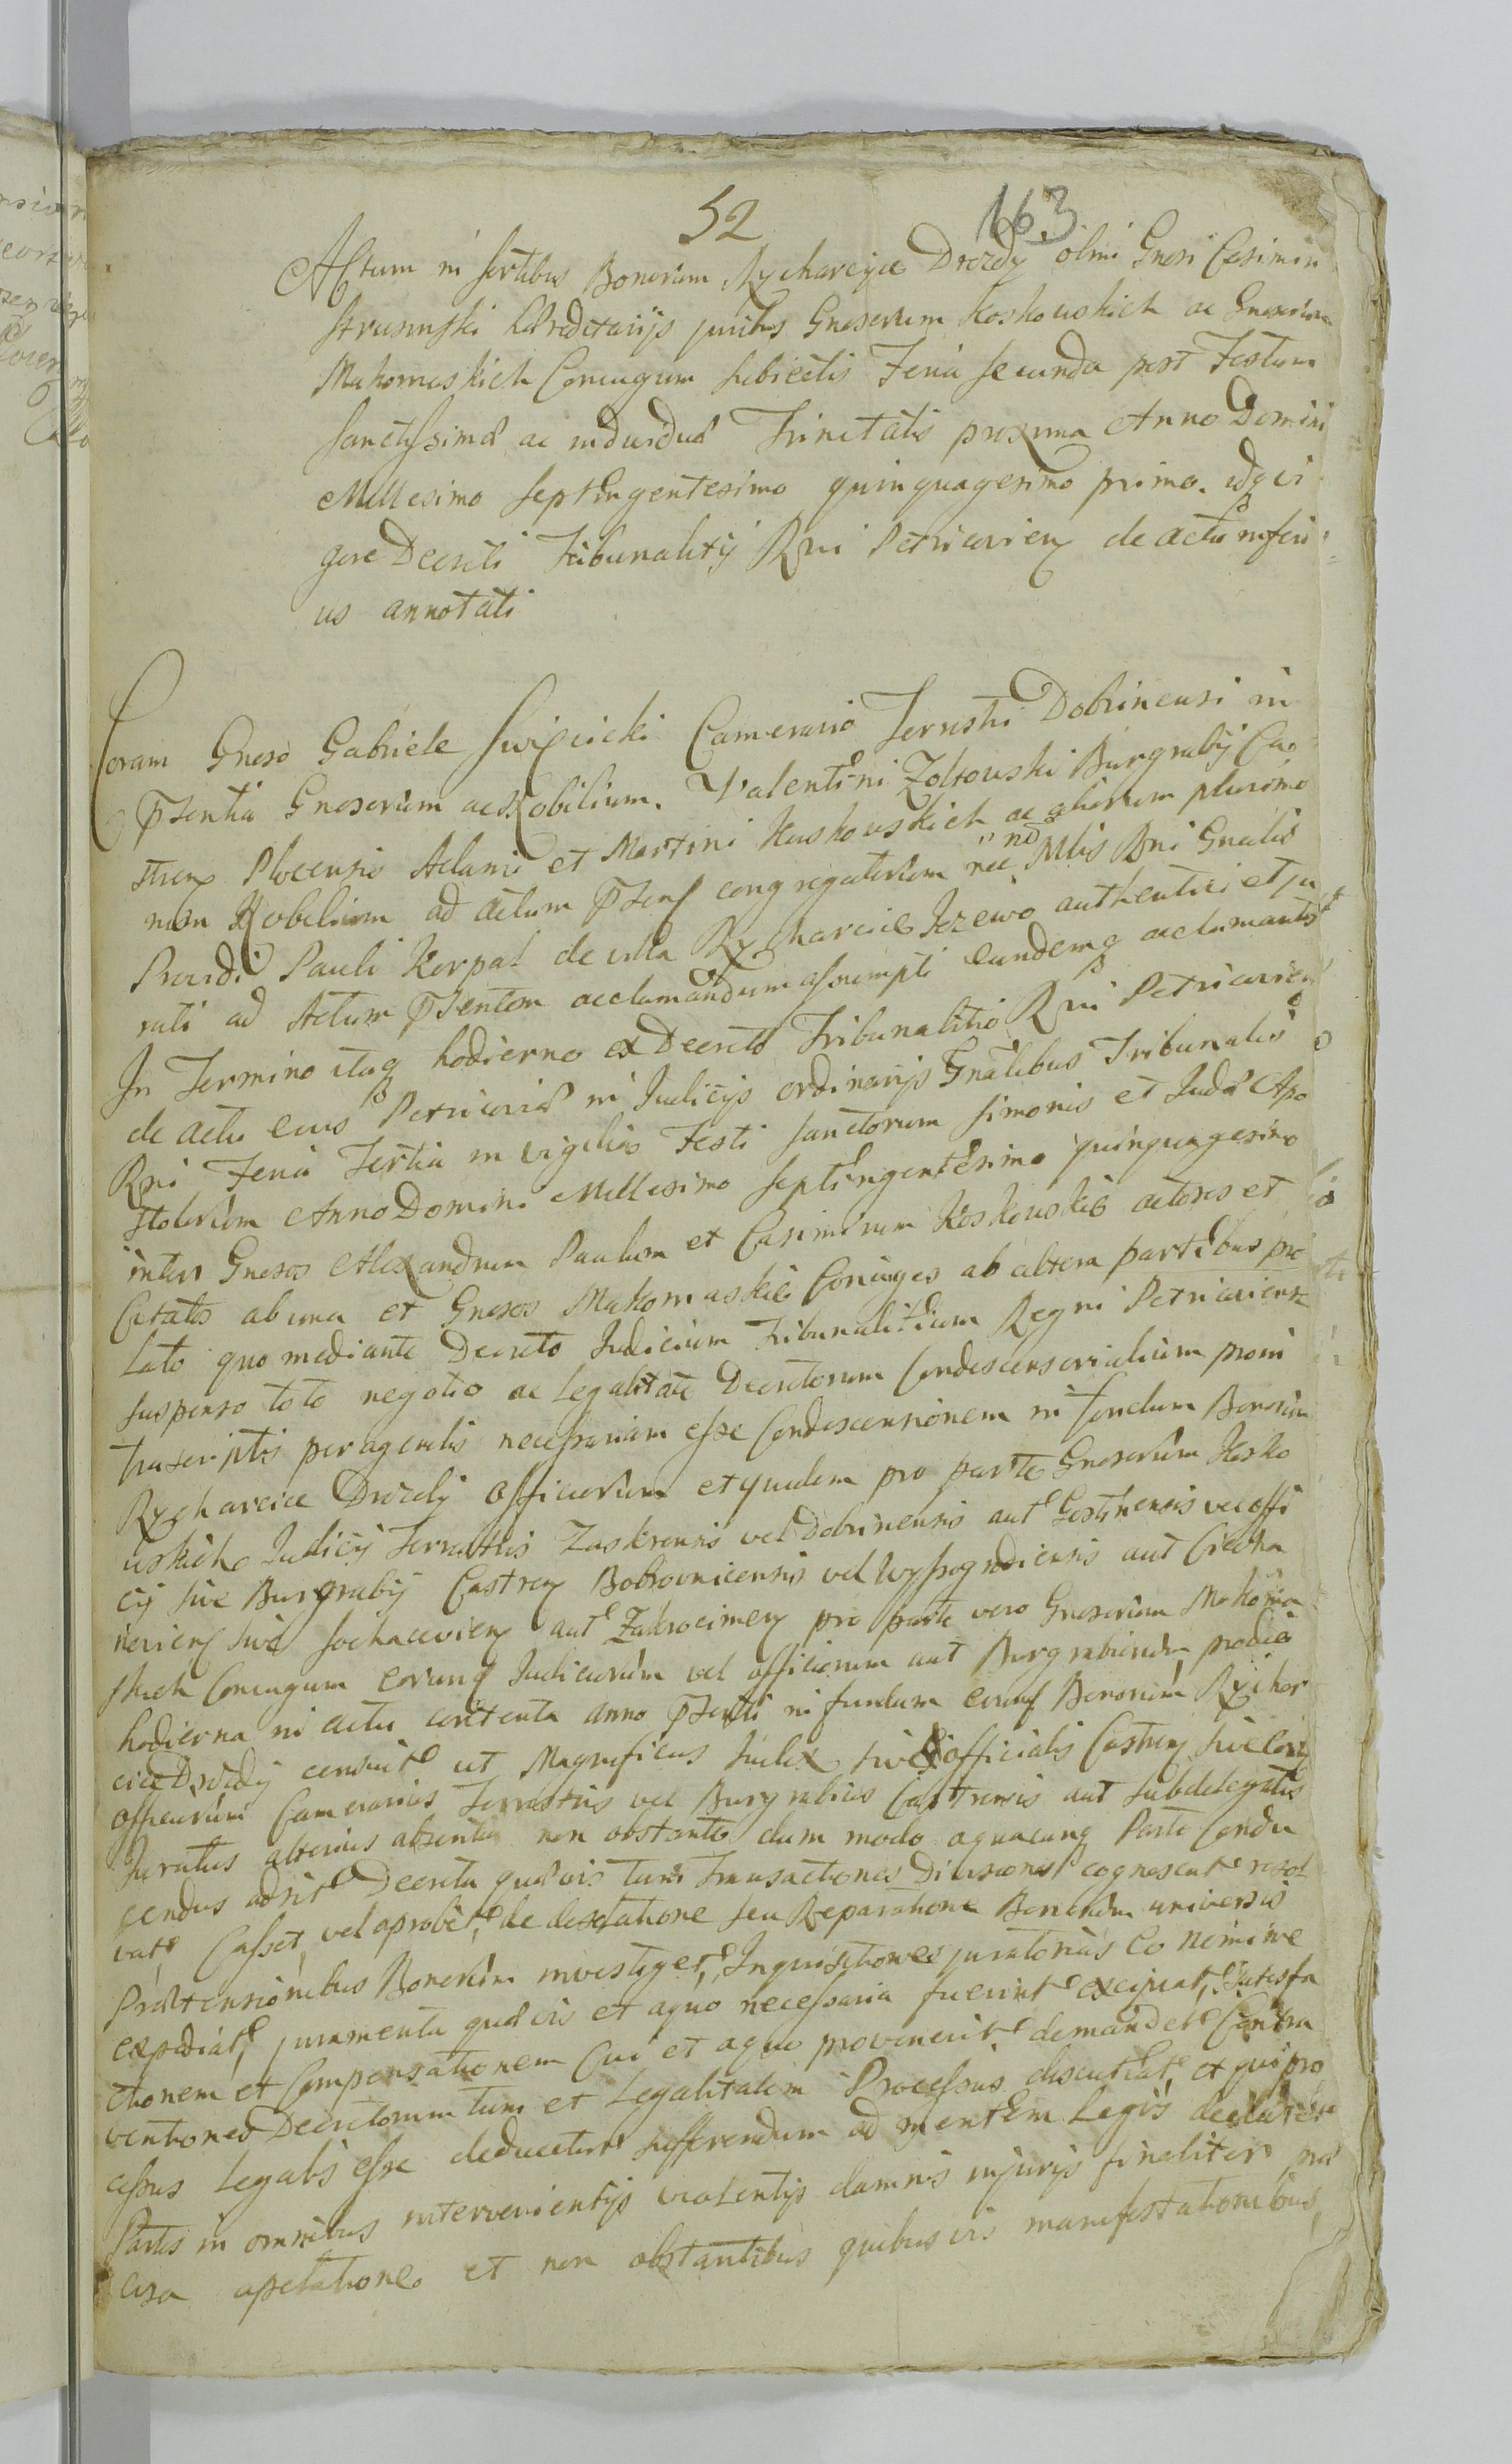 52 163
Actum in sortibus Bonorum Rycharcice Drozdy olim Gnosi Casimiri
Strusinski hæreditarijs juribus Gnosorum Koskowskich ac Gnosorum
Makomaskich Conjugum subiectis Feria secunda post Festum
Sanctissimæ ac individuæ Trinitatis proxima Anno Domini
Millesimo Septingentesimo quinquagesimo primo. idq vi
gore Decreti Tribunalitij Rni Petricovien de actu inferi
us annotati
Coram Gneso Gabriele Swięcicki Camerario Terrestri Dobrinensi in
Psentia Gnosorum ac Nobilium. Valentini Zołtowski Burgrabij Ca
stren Plocensis Adami et Martini Kuskowskich ac aliorum plurimo
rum Nobilium ad actum Psens congregatorum nec no Mlis Rni Gnalis
Providi Pauli Kerpal de villa Rycharcice Jezewo authentici et ju
rati ad Actum Psentem acclamandum assumpti eundemq acclamantis
In Termino itaq hodierno ex Decreto Tribunalitio Rni Petricovien
de actu eius Petricoviæ in Judicijs ordinarijs Gnalibus Tribunalis
Rni Feria Tertia in vigilia Festi Sanctorum Simonis et Judæ Apo
stolorum Anno Domini Millesimo Septingentesimo quinquagesimo
inter Gnosos Alexandrum Paulum et Casimirum Koskowskie actores et
Citatos ab una et Gnosos Makomaskie Coniuges ab altera partibus pro
lato quo mediante Decreto Judicium Tribunalitium Regni Petricoviense
suspenso toto negotio ac Legalitate Decretorum Condescensorialium proni
tuscriptis peragendis necessariam esse Condescensionem in fundum Bonorum
Rycharcice Drozdy officiorum et quidem pro parte Gnosorum Kosko
wskich Judicij Terrestris Zaskrensis vel Dobrinensis aut Gostinensis vel offi
cij sive Burgrabij Castren Bobrownicensis vel Wyssogrodiensis aut Ciecha
novien sive Sochacevien aut Zakrocimen pro parte vero Gnosorum Makoma
skich Conjugum eorumq Judiciorum vel officiorum aut Burgrabiorum, prodie
hodierna in actu contenta anno Psenti in fundum eorumq Bonorum Rychar
cice Drozdy censuit ut Magnificus Judex sive officialis Castren sive eorum
officiorum Camerarius Terrestris vel Burgrabius Castrensis aut Subdelegatus
Juratus alterius absentia non obstante dum modo a quacunq Parte Condu
cendus adsit Decreta quævis tum Transactiones Divisiones cognoscat resol
vat, Casset, vel aprobet, de desolatione seu Reparatione Bonorum universis
Prætensionibus Bonorum investiget, Inquisitiones juratorias eo nomine
expediat, juramenta quævis et a quo necessaria fuerint excipiat, Satisfa
ctionem et Compensationem Cui et a quo provenerit demandet Contra
ventiones Decretorum tum et Legalitatem Processus discutiat, et qui pro
cessus Legalis esse deducetur sufferendum ad mentem Legis declaret
Partes in omnibus intervenientijs violentijs damnis injurijs finaliter, præ
cisa apelatione et non obstantibus quibusvis manifestationibus